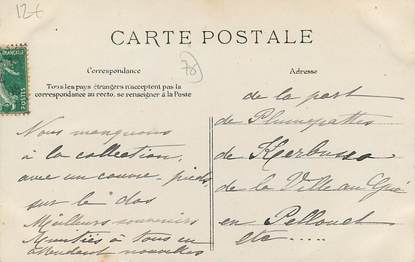 12€
78
CARTE POSTALE
Correspondance
Tous les pays étrangers n'acceptent pas la
correspondance au recto, se renseigner à la Poste
Nous manquions
à la collection,
avec un couvre-pieds
sur le dos
Meilleurs souvenirs
Amitiés à tous en
attendant nouvelles
Adresse
de la part
de Plumepattes
de Kerbusso
de la Ville au Gué
en Pellouët
etc.....
POSTES